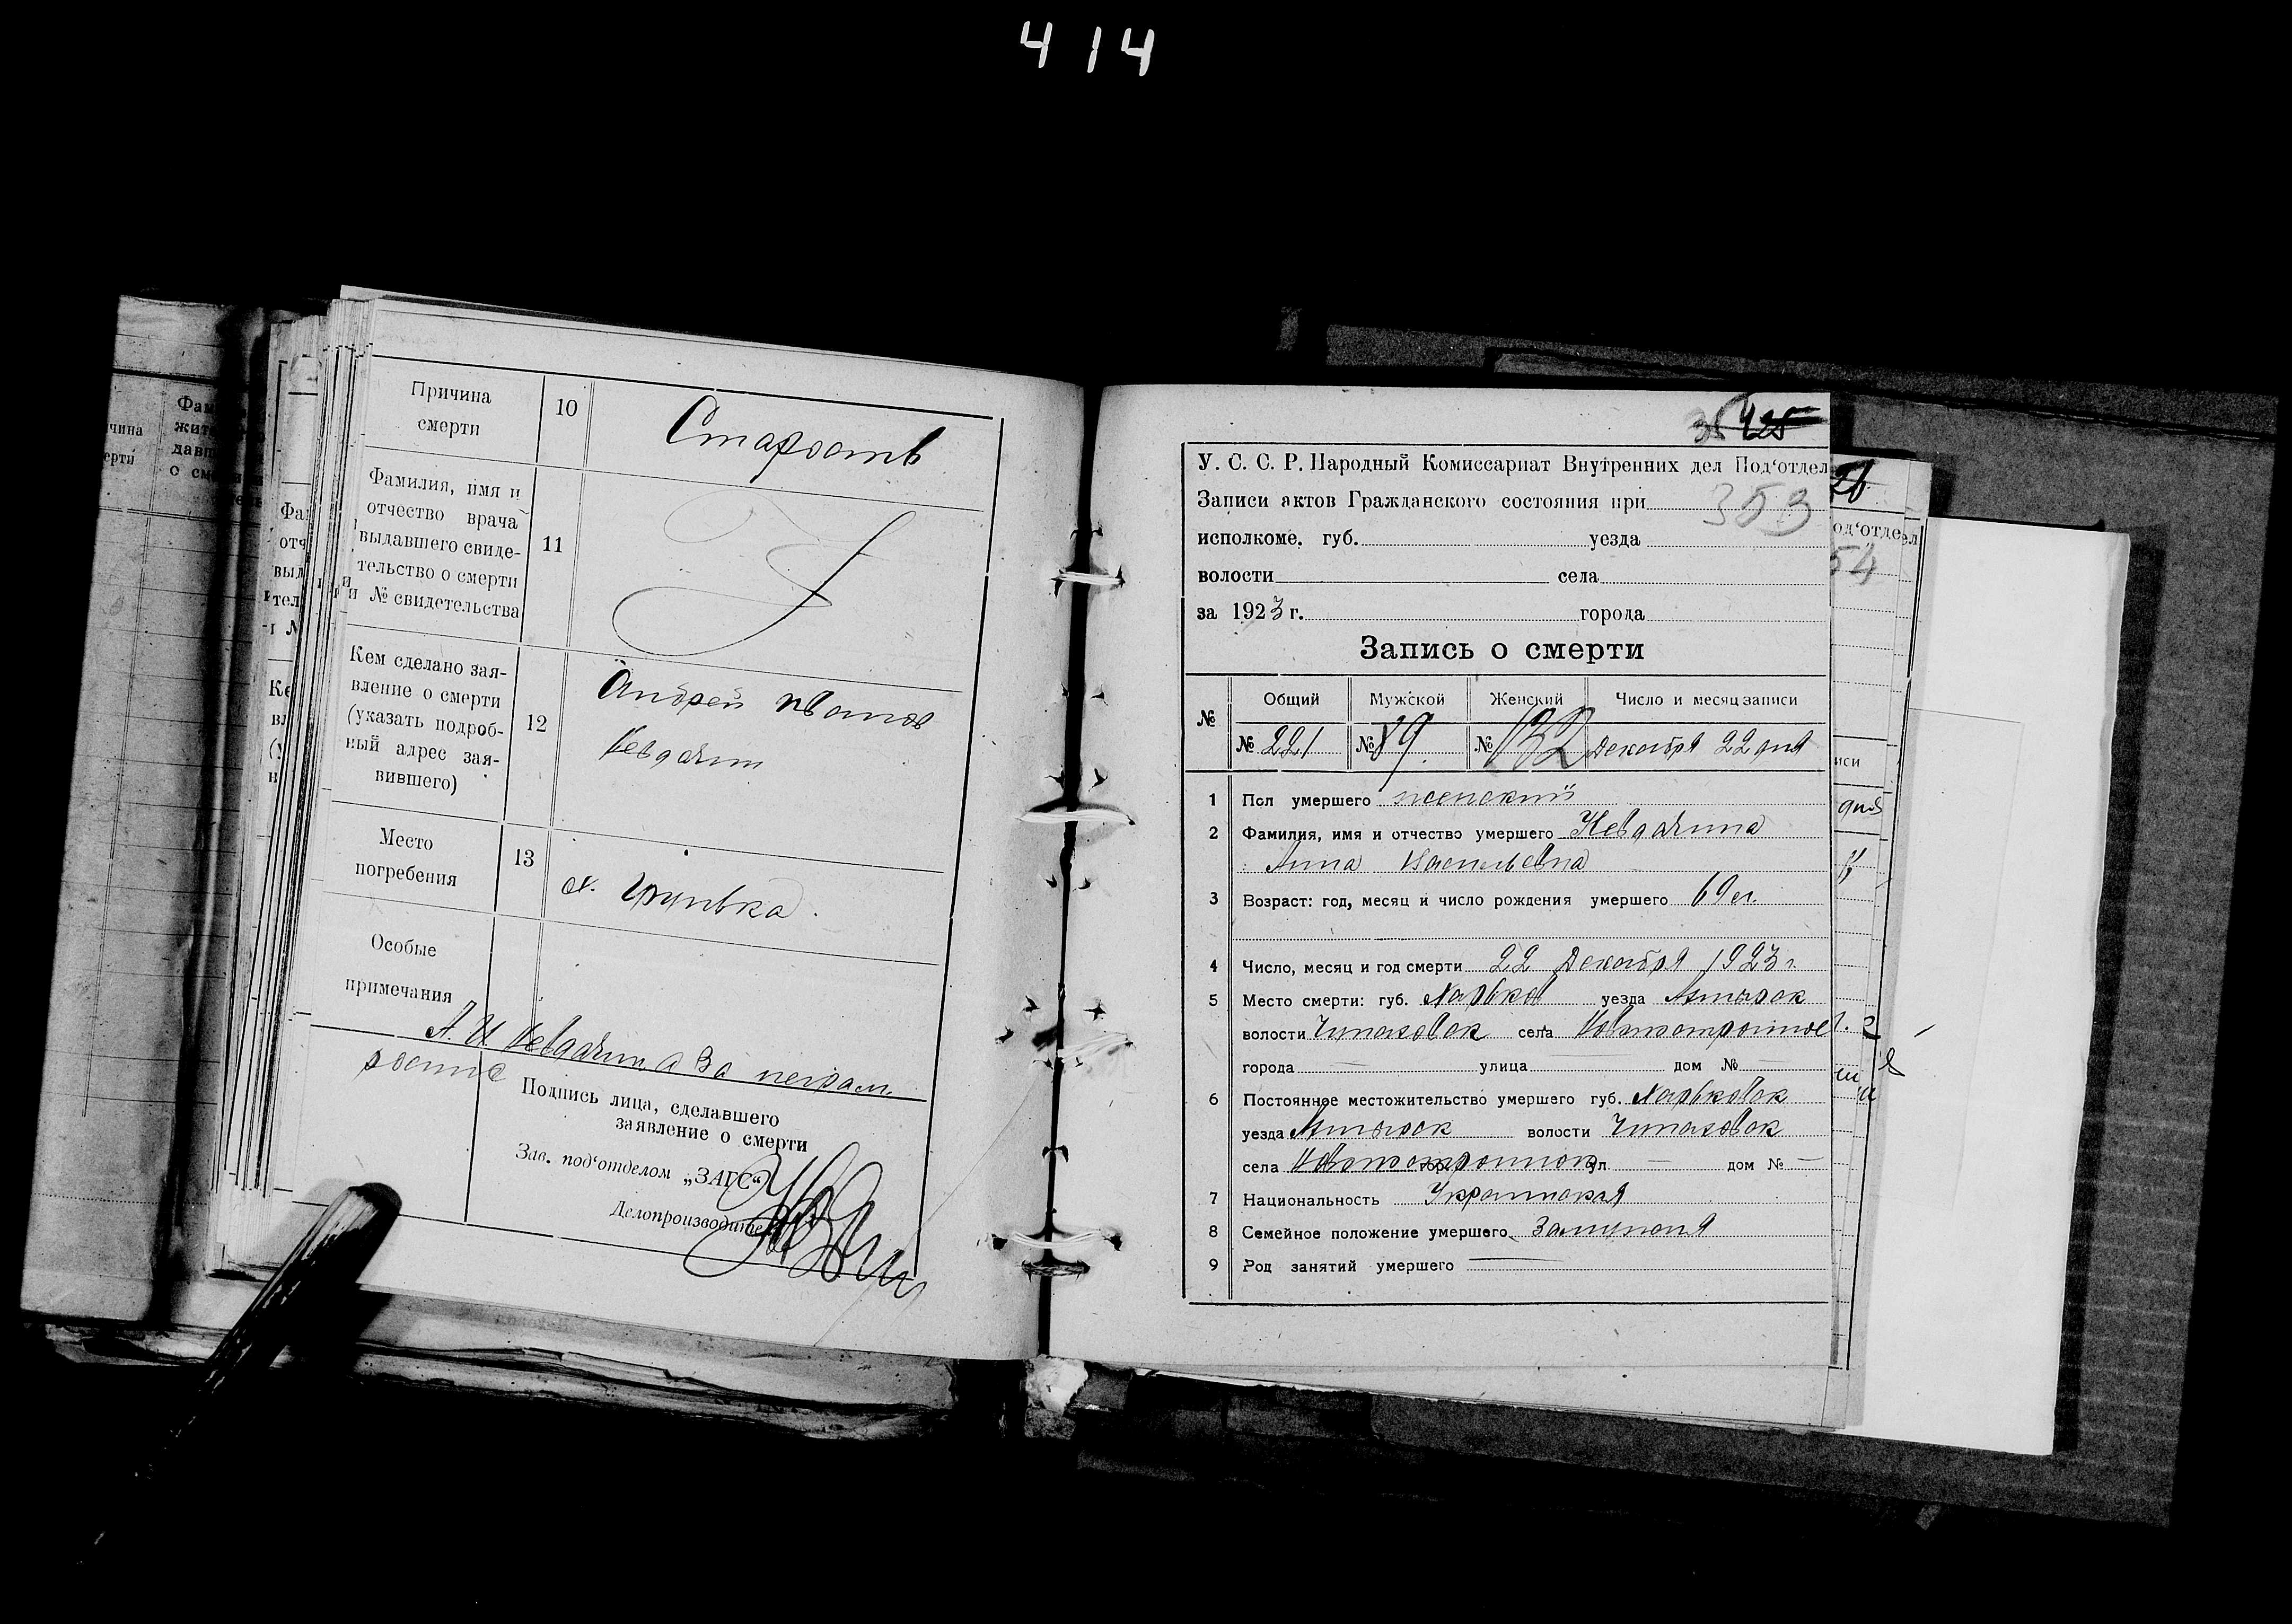 414
Причина
смерти
10
Старость
Фамилия, имя и
отчество врача
выдавшего свиде-
тельство о смерти
и № свидетельства
11
Кем сделано зая-
вление о смерти
(указать подроб-
ный адрес зая-
вившего)
12
Андрей Иванов
Место
погребения
13
х. Грунька
Особые
примечания
А. И. За неграм.
Подпись лица, сделавшего
заявление о смерти
Зав. под‘отделом „ЗАГС“
Делопроизводитель
425
У. С. С. Р. Народный Комиссариат Внутренних дел Под‘отдел
Записи актов Гражданского состояния при 353
исполкоме. губ. уезда
волости села
за 1923 г. города
Запись о смерти
№ Общий Мужской Женский Число и месяц записи
№ 221 № 89 № 132 Декабря 22 дня
1 Пол умершего женский
2 Фамилия, имя и отчество умершего
Анна Васильевна
3 Возраст: год, месяц и число рождения умершего 69 л.
4 Число, месяц и год смерти 22 Декабря 1923 г.
5 Место смерти: губ. Харьков уезда Ахтырск
волости села
города — улица — дом № —
6 Постоянное местожительство умершего губ. Харьковск
уезда Ахтырск волости
села ул. — дом № —
7 Национальность Украинская
8 Семейное положение умершего замужняя
9 Род занятий умершего —